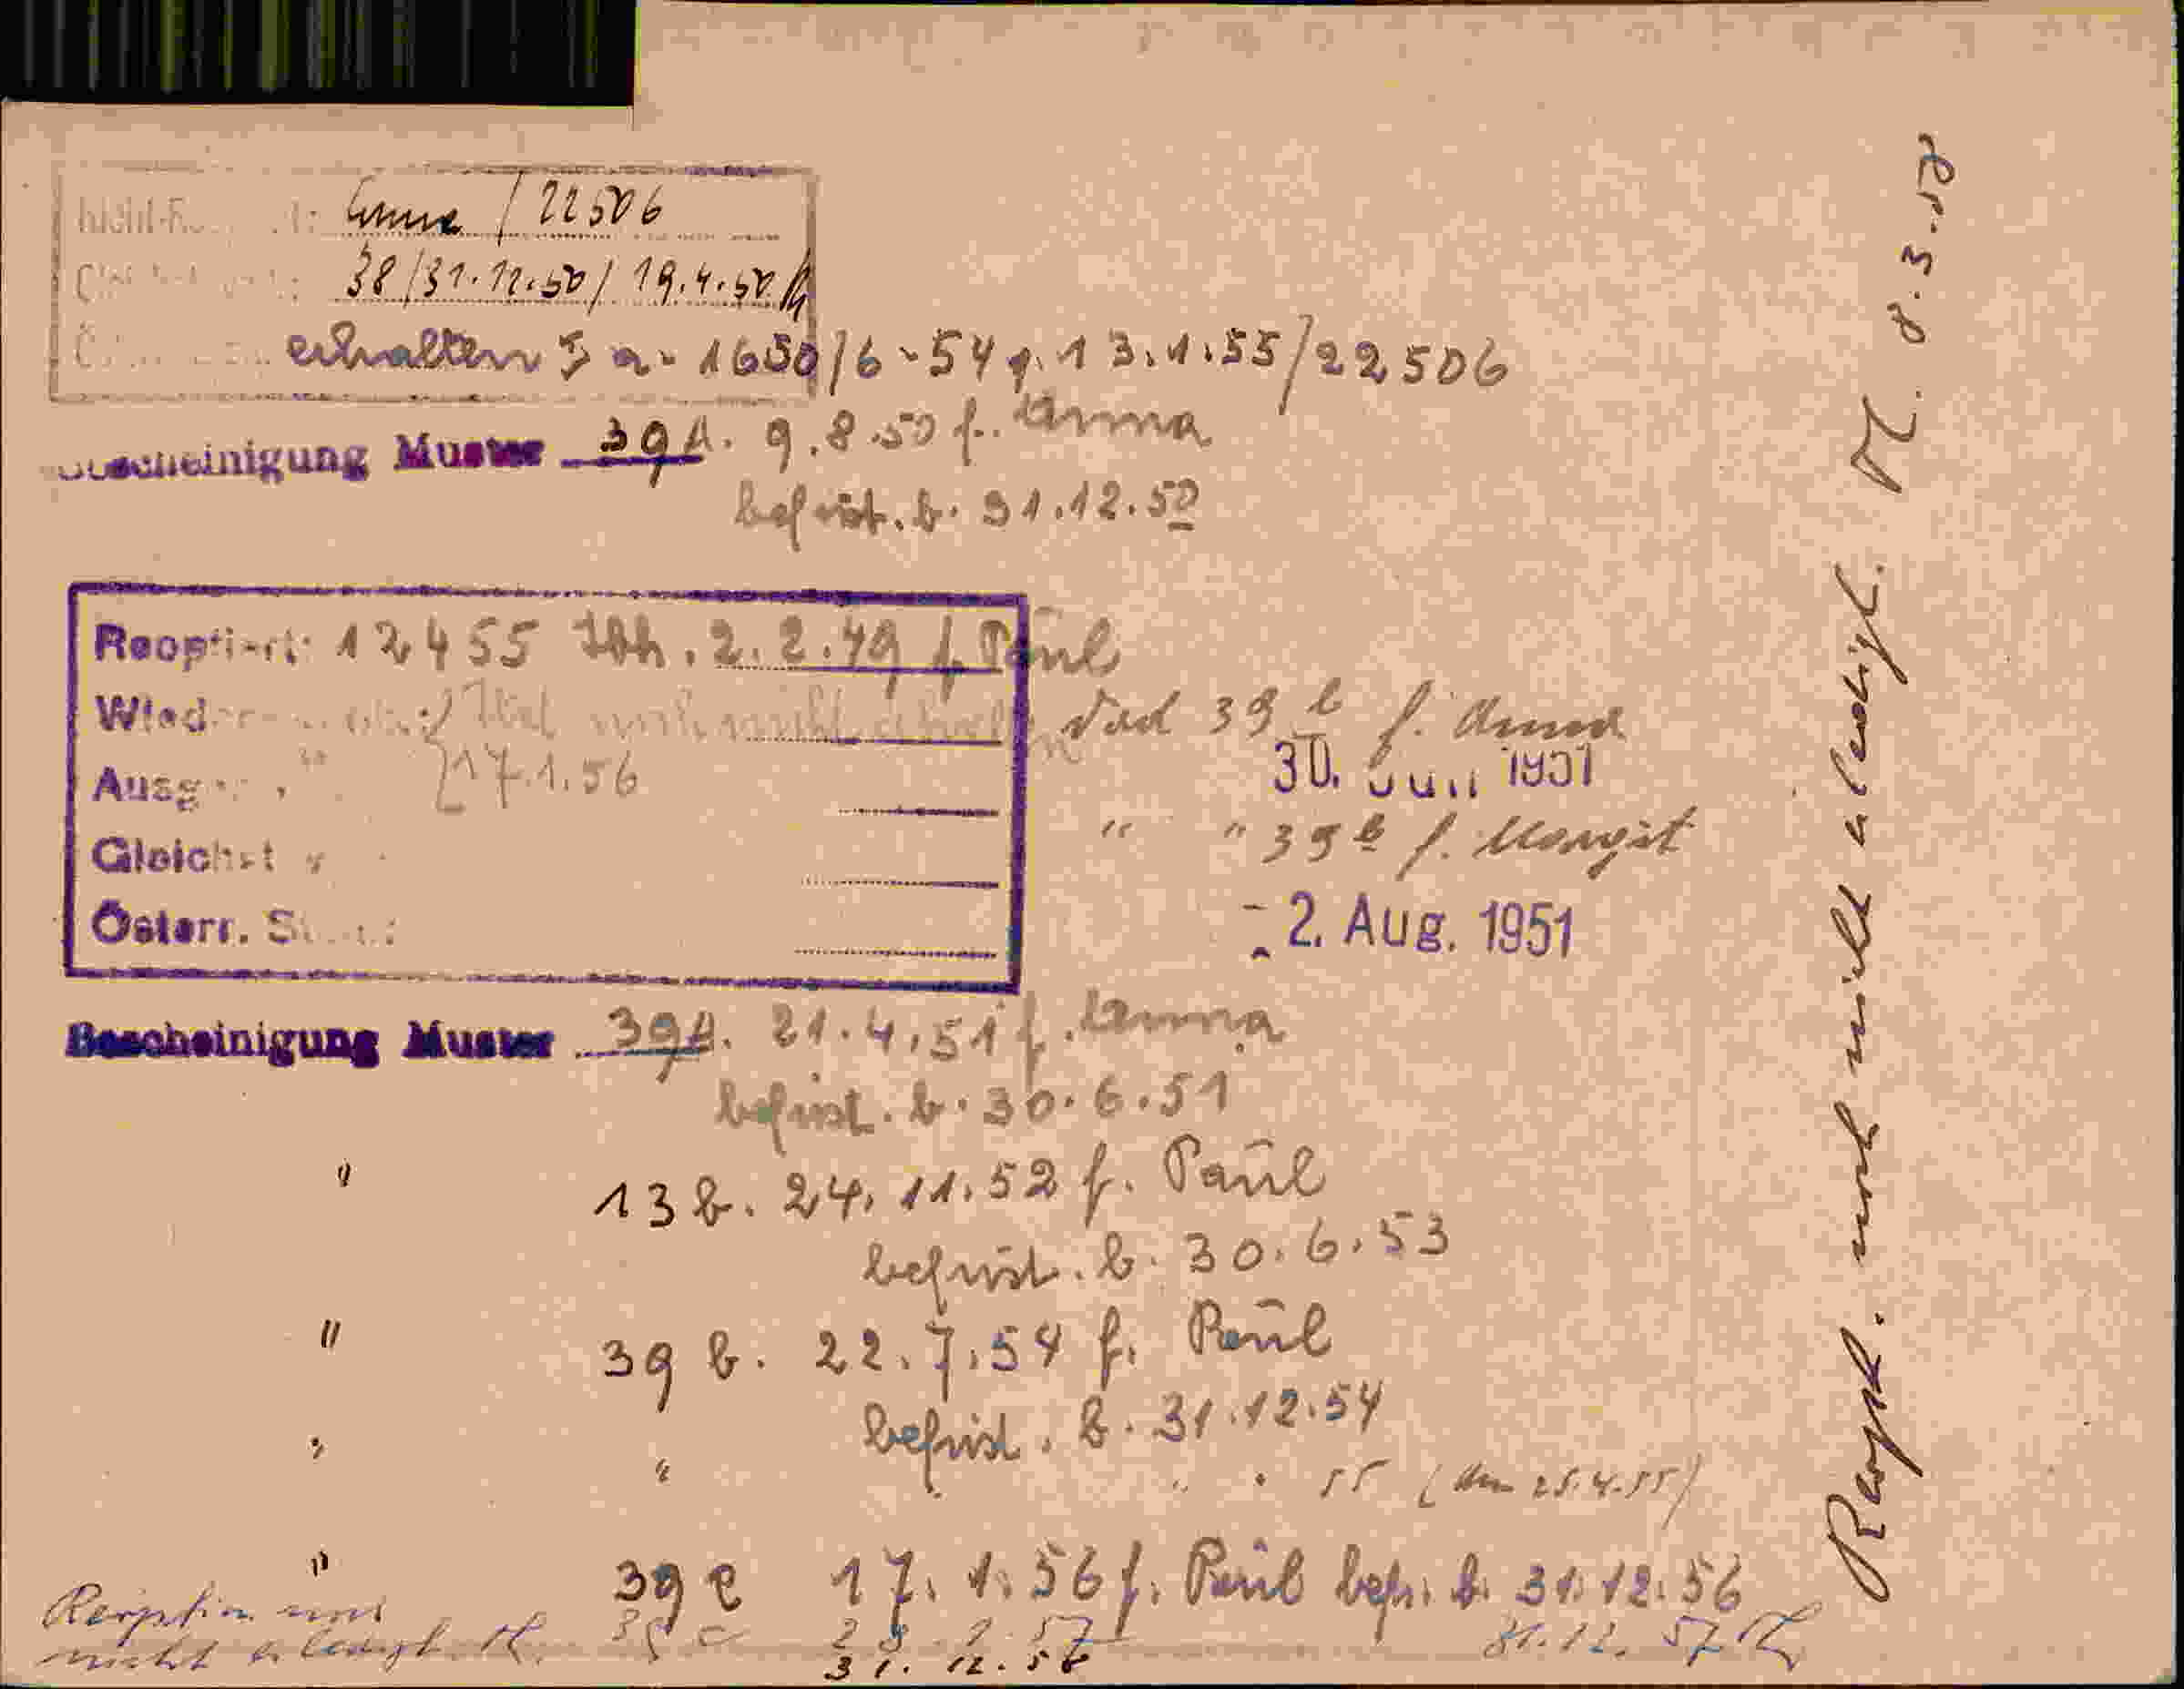 Anna / 22506
38/31.12.50 / 19.4.50
erhalten J a - 1650/6-54 v. 13.1.55/22506
Bescheinigung Muster 39A. 9.8.50 f. Anna
befrist. b. 31.12.50
Reoptiert: 12455 2.2.49 f. Paul
noch nicht erhalten
17.1.56
39 b f. Anna
30. Juni 1951
" " 39 b f. Margit
- 2. Aug. 1951
Gleichst
Österr.
Bescheinigung Muster 39A. 21.4.51 f. Anna
befrist. b. 30.6.51
" 13 b. 24.11.52 f. Paul
befrist. b. 30.6.53
" 39 b. 22.7.54 f. Paul
befrist. b. 31.12.54
" " " " 55 (am 25.4.55)
" 39 e 17.1.56 f. Paul befr. b. 31.12.56
Reoption noch
nicht erledigt
31.12.57
31.12.58
Reopt. noch nicht erledigt. 8.3.57